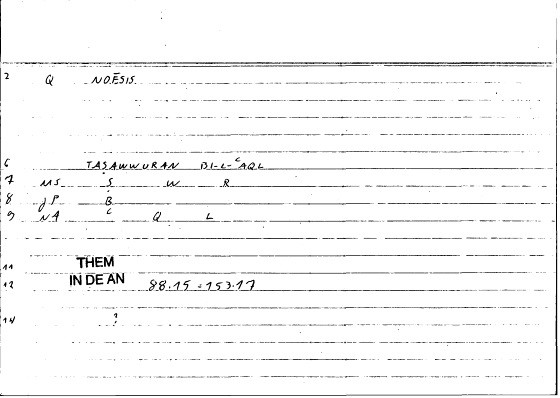 2 Q NOĒSIS
6 TAṢAWWURAN BI-L-ʿAQL
7 MS Ṣ W R
8 JP B
9 NA ʿ Q L
11 THEM
12 IN DE AN 88.15 = 153.17
14 ?